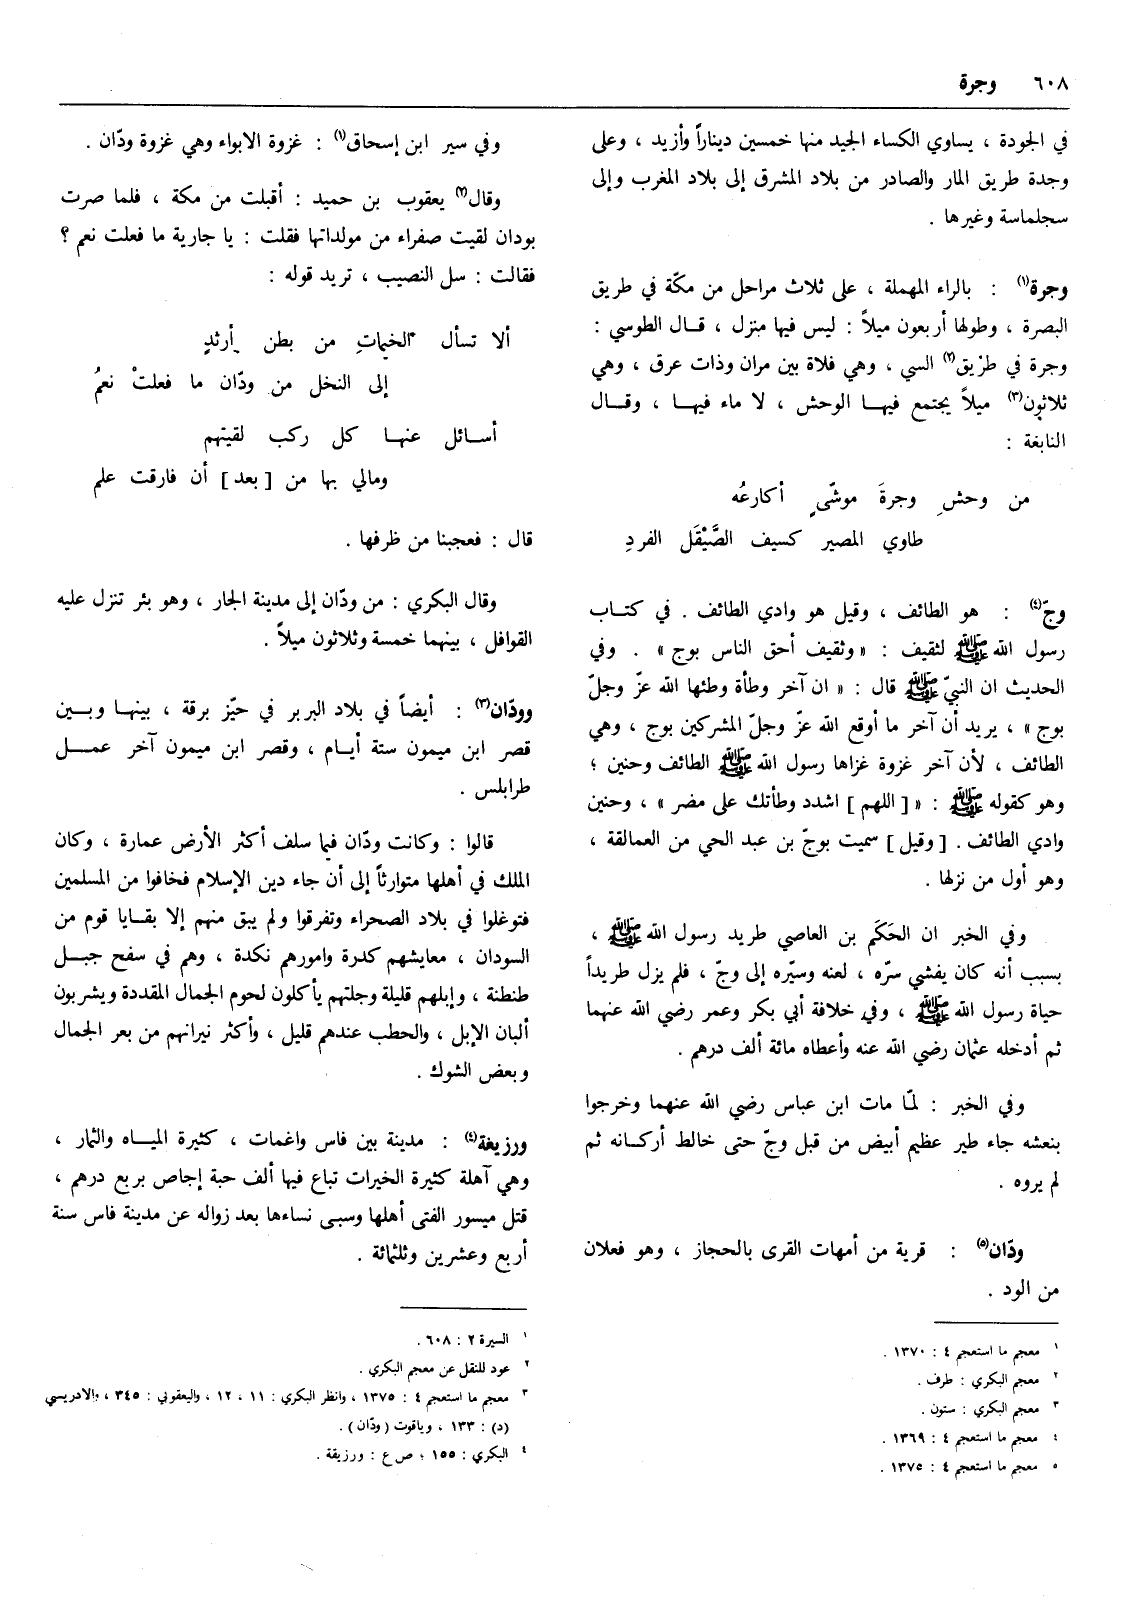 ٦٠٨ وجرة
في الجودة ، يساوي الكساء الجيد منها خمسين ديناراً وأزيد ، وعلى
وجدة طريق المار والصادر من بلاد المشرق إلى بلاد المغرب وإلى
سجلماسة وغيرها .
وجرة(١) : بالراء المهملة ، على ثلاث مراحل من مكّة في طريق
البصرة ، وطولها أربعون ميلاً : ليس فيها منزل ، قال الطوسي :
وجرة في طرْيق(٢) السي ، وهي فلاة بين مران وذات عرق ، وهي
ثلاثون(٣) ميلاً يجتمع فيها الوحش ، لا ماء فيها ، وقال
النابغة :
من وحشِ وجرةَ موشّىٍ أكارعُه
طاوي المصير كسيف الصَّيْقَل الفردِ
وجّ(٤) : هو الطائف ، وقيل هو وادي الطائف . في كتاب
رسول الله ﷺ لثقيف : « وثقيف أحق الناس بوج » . وفي
الحديث ان النبيّ ﷺ قال : « ان آخر وطأة وطئها الله عزّ وجلّ
بوج » ، يريد أن آخر ما أوقع الله عزّ وجلّ المشركين بوج ، وهي
الطائف ، لأن آخر غزوة غزاها رسول الله ﷺ الطائف وحنين ؛
وهو كقوله ﷺ : « [ اللهم ] اشدد وطأتك على مضر » ، وحنين
وادي الطائف . [ وقيل ] سميت بوجّ بن عبد الحي من العمالقة ،
وهو أول من نزلها .
وفي الخبر ان الحَكَم بن العاصي طريد رسول الله ﷺ ،
بسبب أنه كان يفشي سرّه ، لعنه وسيّره إلى وجّ ، فلم يزل طريداً
حياة رسول الله ﷺ ، وفي خلافة أبي بكر وعمر رضي الله عنهما
ثم أدخله عثمان رضي الله عنه وأعطاه مائة ألف درهم .
وفي الخبر : لمّا مات ابن عباس رضي الله عنهما وخرجوا
بنعشه جاء طير عظيم أبيض من قبل وجّ حتى خالط أركانه ثم
لم يروه .
ودّان(٥) : قرية من أمهات القرى بالحجاز ، وهو فعلان
من الود .
١ معجم ما استعجم ٤ : ١٣٧٠ .
٢ معجم البكري : طرف .
٣ معجم البكري : ستون .
٤ معجم ما استعجم ٤ : ١٣٦٩ .
٥ معجم ما استعجم ٤ : ١٣٧٥ .
وفي سير ابن إسحاق(١) : غزوة الابواء وهي غزوة ودّان .
وقال(٢) يعقوب بن حميد : أقبلت من مكة ، فلما صرت
بودان لقيت صفراء من مولداتها فقلت : يا جارية ما فعلت نعم ؟
فقالت : سل النصيب ، تريد قوله :
ألا تسأل الخيماتِ من بطن أرثدٍ
إلى النخل من ودّان ما فعلتْ نعمُ
أسائل عنها كل ركب لقيتهم
ومالي بها من [ بعد ] أن فارقت علم
قال : فعجبنا من ظرفها .
وقال البكري : من ودّان إلى مدينة الجار ، وهو بئر تنزل عليه
القوافل ، بينهما خمسة وثلاثون ميلاً .
وودّان(٣) : أيضاً في بلاد البربر في حيّز برقة ، بينها وبين
قصر ابن ميمون ستة أيام ، وقصر ابن ميمون آخر عمل
طرابلس .
قالوا : وكانت ودّان فيما سلف أكثر الأرض عمارة ، وكان
الملك في أهلها متوارثاً إلى أن جاء دين الإسلام فخافوا من المسلمين
فتوغلوا في بلاد الصحراء وتفرقوا ولم يبق منهم إلا بقايا قوم من
السودان ، معايشهم كدرة وامورهم نكدة ، وهم في سفح جبل
طنطنة ، وإبلهم قليلة وجلتهم يأكلون لحوم الجمال المقددة ويشربون
ألبان الإبل ، والحطب عندهم قليل ، وأكثر نيرانهم من بعر الجمال
وبعض الشوك .
ورزيغة(٤) : مدينة بين فاس واغمات ، كثيرة المياه والثمار ،
وهي آهلة كثيرة الخيرات تباع فيها ألف حبة إجاص بربع درهم ،
قتل ميسور الفتى أهلها وسبى نساءها بعد زواله عن مدينة فاس سنة
أربع وعشرين وثلثمائة .
١ السيرة ٢ : ٦٠٨ .
٢ عود للنقل عن معجم البكري .
٣ معجم ما استعجم ٤ : ١٣٧٥ ، وانظر البكري : ١١ ، ١٢ ، واليعقوبي : ٣٤٥ ، والادريسي
(د) : ١٣٣ ، وياقوت ( ودّان ) .
٤ البكري : ١٥٥ ؛ ص ع : ورزيقة .